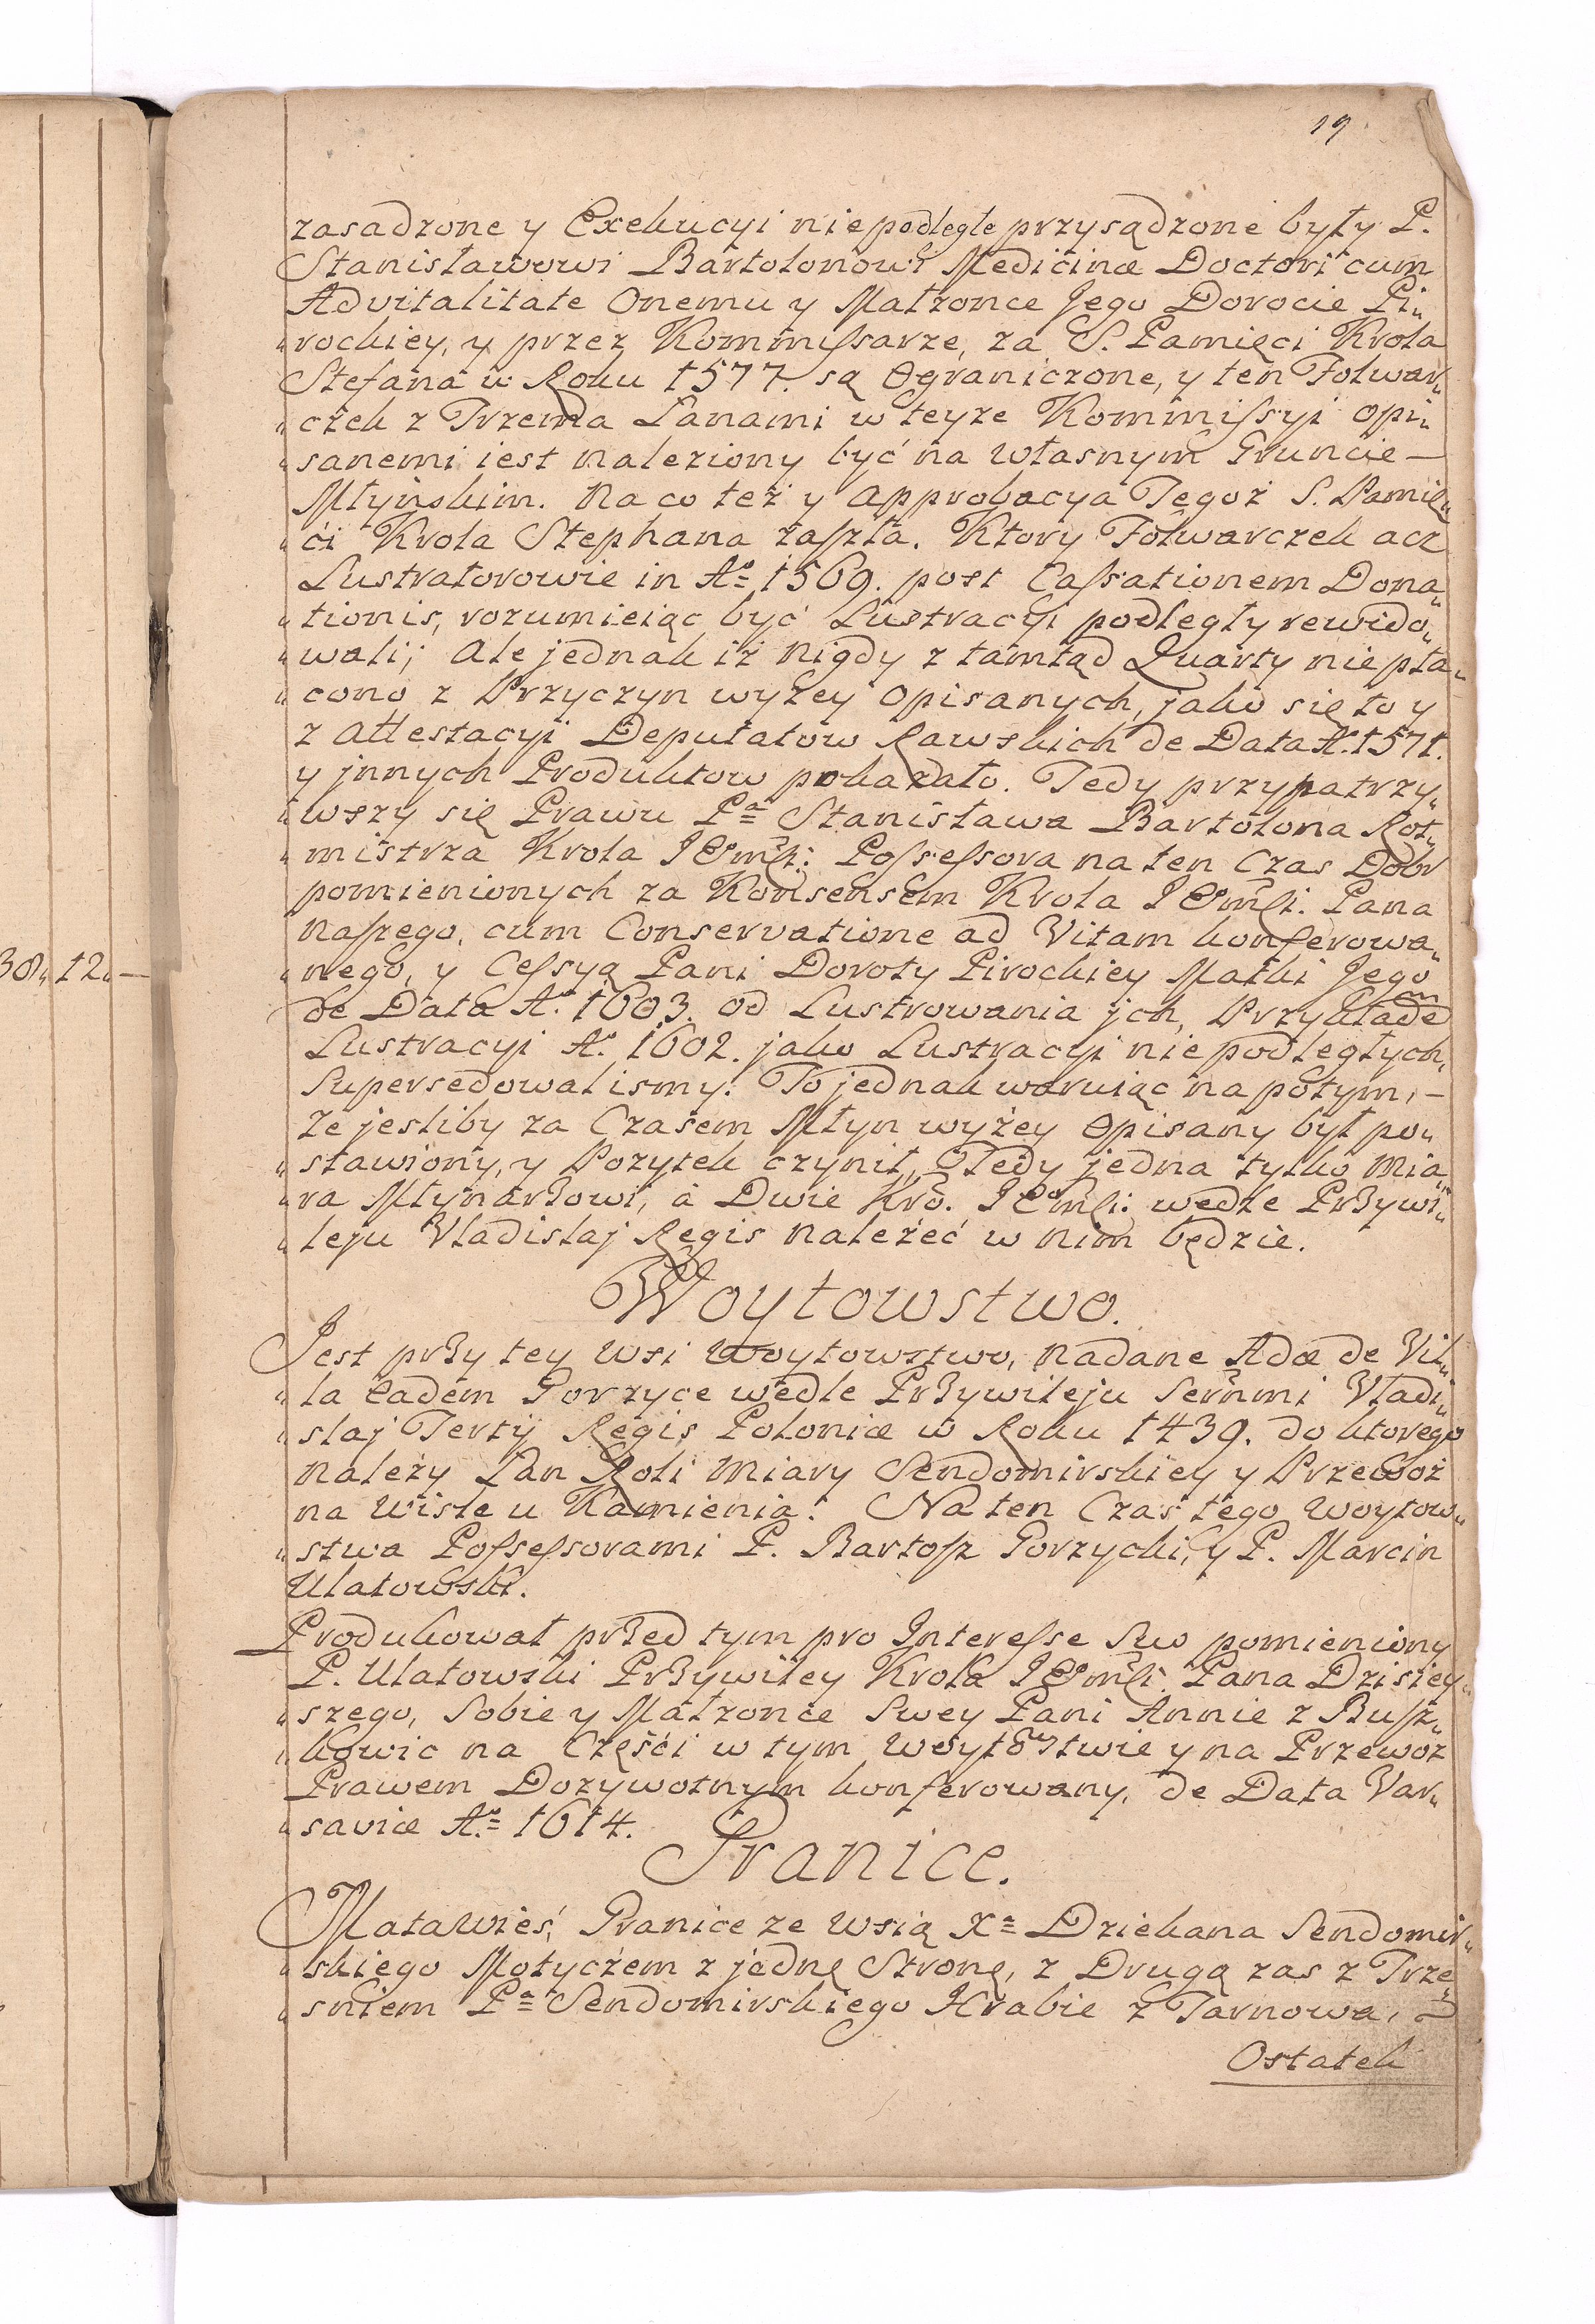 19
zasadzone y Exekucyi niepodległe przysądzone były P.
Stanisławowi Bartolonowi Medicinæ Doctori cum
Advitalitate Onemu y Małzonce Jego Dorocie Pi„
„rockiey, y przez Kommiſsarze, za S. Pamięci Krola
Stefana w Roku 1577. są Ograniczone, y ten Folwar„
„czek z Trzema Lanami w teyze Kommiſsyi opi„
„sanemi iest naleziony być na własnym Gruncie —
Młyńskim. Na co też y Approbacya Tegoż S. Pamię„
„ći Krola Stephana zaſzła. Ktory Folwarczek acz
Lustratorowie in Aº 1569. post Caſsationem Dona„
„tionis, rozumieiąc być Lustracyi podległy rewido„
„wali; Ale jednak iż Nigdy z tamtąd Quarty nie pła„
„cono z Przyczyn wyżey Opisanych, jako się to y
z Attestacyi Deputatow Rawskich de Data Aº. 1571.
y jnnych Produktow pokazało. Tedy przypatrzy„
„wszy się Prawu Pª Stanisława Bartolona Rot„
„mistrza Krola JEmſi: Poſseſsora na ten Czas Dobr
pomienionych za Konsensem Krola JEmſi. Pana
Naſzego, cum Conservatione ad Vitam konferowa„
„nego, y Ceſsyą Pani Doroty Pirockiey Matki Jego
de Data Aº. 1603. od Lustrowania jch, Przykładem
Lustracyi Aº. 1602. jako Lustracyi nie podległych,
Supersedowalismy. To jednak waruiąc na potym, —
Ze jesliby za Czasem Młyn wyżey Opisany był po„
„stawiony, y Pozytek czynił, Tedy jedna tylko Mia„
„ra Młynarzowi, á Dwie Kro. JEmſi: wedle Przywi„
„leju Vladislaj Regis Należeć w nim będzie.
Woytowstwo.
Jest przy tey Wsi Woytowstwo, Nadane Adæ de Vil„
„la eadem Gorzyce wedle Przywileju Serñmi Vladi„
„slaj Tertij Regis Poloniæ w Roku 1439. do ktorego
Należy Lan Roli Miary Sendomirskiey y Przewoz
na Wisłe u Kamienia. Na ten Czas tego Woytow„
„stwa Poſseſsorami P. Bartoſz Gorzycki, y P. Marcin
Ulatowski.
Produkował przed tym pro Intereſse Suo pomieniony
P. Ulatowski Przywiley Krola JEmſi. Pana Dzisiey„
„szego, Sobie y Małzonce Swey Pani Annie z Buſz„
„kowic na Częśći w tym Woytowstwie y na Przewoz
Prawem Dozywotnym konferowany, de Data Var„
„saviæ Aº. 1614.
Granice.
Matawieś, Granice ze wsią Xª Dziekana Sendomir„
„skiego Motyczem z jednę Stronę, z Drugą zas z Trze„
„sniem Pª Sendomirskiego Hrabie z Tarnowa,
Ostatek
38„ 12„ —